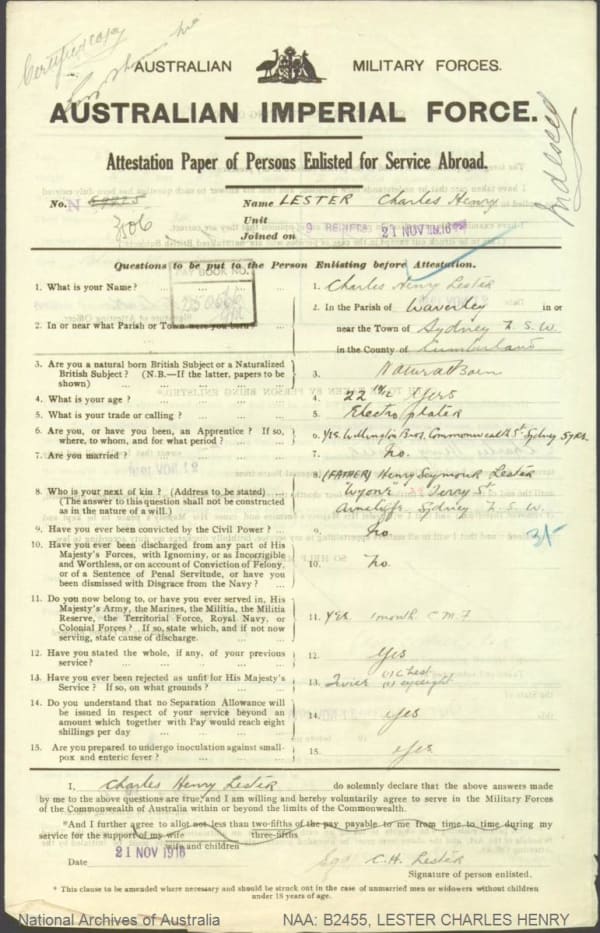 Certified copy
AUSTRALIAN MILITARY FORCES.
AUSTRALIAN IMPERIAL FORCE.
Attestation Paper of Persons Enlisted for Service Abroad.
Indexed
No. N
3506
Name LESTER Charles Henry
Unit
Joined on 21 NOV 1916
Questions to be put to the Person Enlisting before Attestation.
BOOK NO.
1. What is your Name? ... 1. Charles Henry Lester
2. In or near what Parish or Town were you born? ... 2. In the Parish of Waverley in or
near the Town of Sydney N.S.W.
in the County of Cumberland
3. Are you a natural born British Subject or a Naturalized
British Subject? (N.B.—If the latter, papers to be
shown) ... 3. Natural Born
4. What is your age? ... 4. 22 Yers
5. What is your trade or calling? ... 5. Electro plater
6. Are you, or have you been, an Apprentice? If so,
where, to whom, and for what period? ... 6. Yes. Wellington Bros. Commonwealth St. Sydney 5yrs.
7. Are you married? ... 7. No.
8. Who is your next of kin? (Address to be stated) ...
(The answer to this question shall not be construed
as in the nature of a will.)
8. (FATHER) Henry Seymour Lester
"Wyong" Terry St
Arncliffe Sydney N.S.W.
9. Have you ever been convicted by the Civil Power? ... 9. No
3/-
10. Have you ever been discharged from any part of His
Majesty's Forces, with Ignominy, or as Incorrigible
and Worthless, or on account of Conviction of Felony,
or of a Sentence of Penal Servitude, or have you
been dismissed with Disgrace from the Navy? ... 10. No.
11. Do you now belong to, or have you ever served in, His
Majesty's Army, the Marines, the Militia, the Militia
Reserve, the Territorial Force, Royal Navy, or
Colonial Forces? If so, state which, and if not now
serving, state cause of discharge. 11. Yes. 1 month C M F
12. Have you stated the whole, if any, of your previous
service? ... 12. Yes
13. Have you ever been rejected as unfit for His Majesty's
Service? If so, on what grounds? 13. Twice (1) Chest
(2) eyesight
14. Do you understand that no Separation Allowance will
be issued in respect of your service beyond an
amount which together with Pay would reach eight
shillings per day ... 14. Yes
15. Are you prepared to undergo inoculation against small-
pox and enteric fever? ... 15. Yes
I, Charles Henry Lester do solemnly declare that the above answers made
by me to the above questions are true, and I am willing and hereby voluntarily agree to serve in the Military Forces
of the Commonwealth of Australia within or beyond the limits of the Commonwealth.
*And I further agree to allot not less than two-fifths of the pay payable to me from time to time during my
three-fifths
service for the support of my wife
wife and children
Date 21 NOV 1916
Sgd C.H. Lester
Signature of person enlisted.
* This clause to be amended where necessary and should be struck out in the case of unmarried men or widowers without children
under 18 years of age.
National Archives of Australia NAA: B2455, LESTER CHARLES HENRY